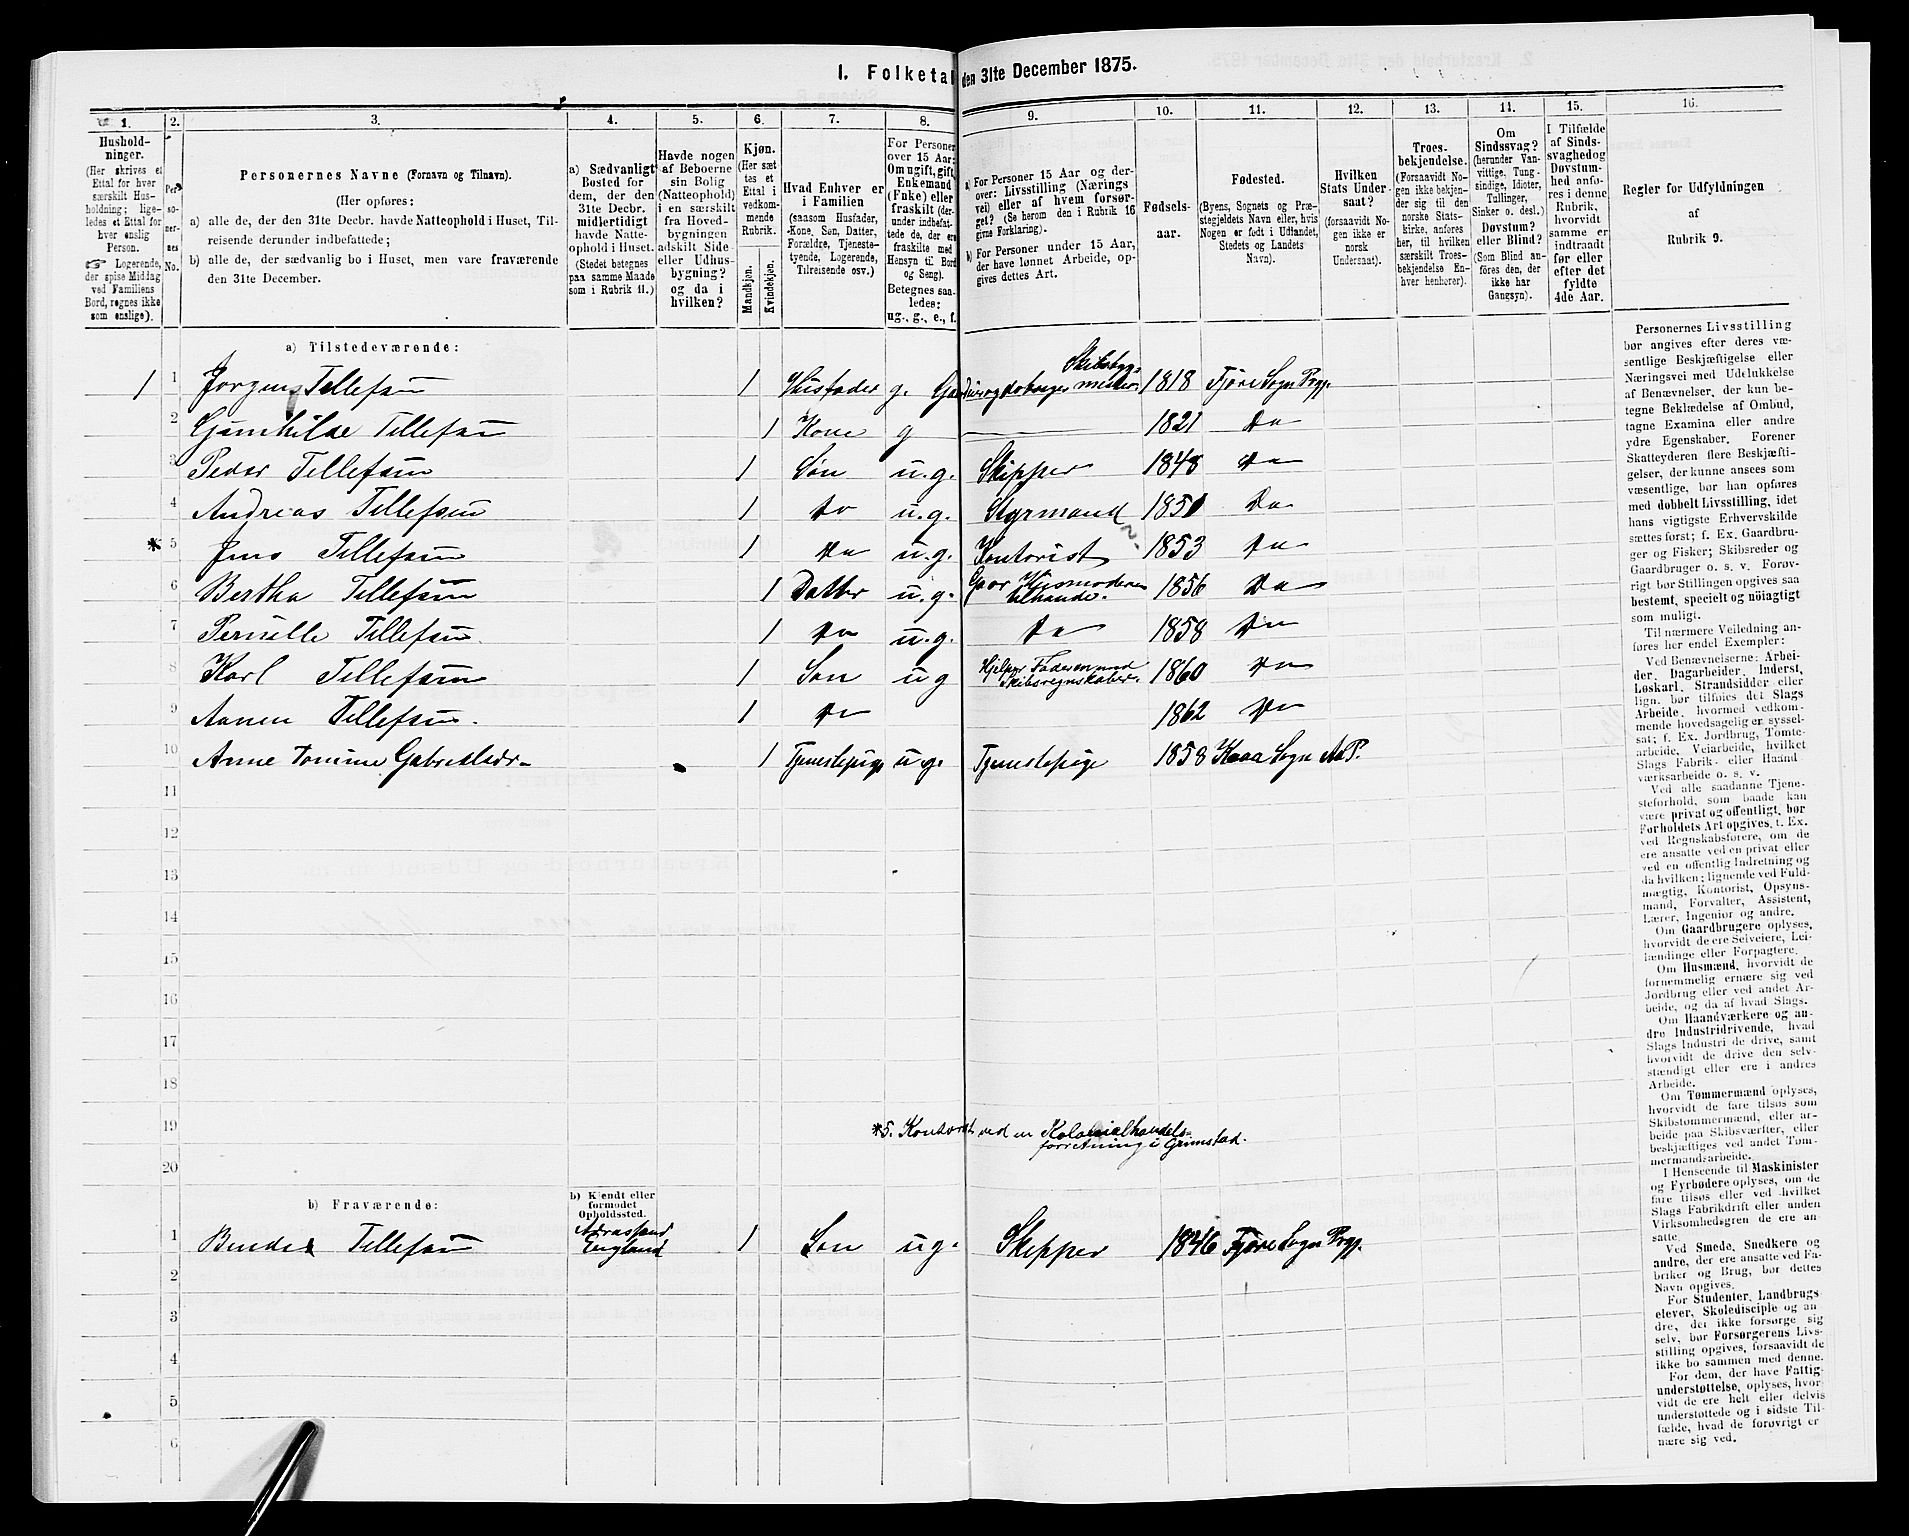 I. Folketal den 31te December 1875.
1. 2. 3. 4. 5. 6. 7. 8. 9. 10. 11. 12. 13. 14. 15. 16.
Hushold-
ninger.
(Her skrives et
Ettal for hver
særskilt Hus-
holdning; lige-
ledes et Ettal for
hver enslig
Person.
☞ Logerende,
der spise Middag
ved Familiens
Bord, regnes ikke
som enslige).
Per
so-
ner-
nes
No.
Personernes Navne (Fornavn og Tilnavn).
(Her opføres:
a) alle de, der den 31te Decbr. havde Natteophold i Huset, Til-
reisende derunder indbefattede;
b) alle de, der sædvanlig bo i Huset, men vare fraværende
den 31te December.
a) Sædvanligt
Bosted for
dem, der den
31te Decbr.
midlertidigt
havde Natte-
ophold i Huset.
(Stedet betegnes
paa samme Maade
som i Rubrik 11.)
Havde nogen
af Beboerne
sin Bolig
(Natteophold)
i en særskilt
fra Hoved-
bygningen
adskilt Side-
eller Udhus-
bygning?
og da i
hvilken?
Kjøn.
(Her sæt-
tes et
Ettal i
vedkom-
mende
Rubrik.
Mandkjøn.
Kvindekjøn.
Hvad Enhver er
i Familien
(saasom Husfader,
Kone, Søn, Datter,
Forældre, Tjeneste-
tyende, Logerende,
Tilreisende osv.)
For Personer
over 15 Aar:
Om ugift, gift,
Enkemand
(Enke) eller
fraskilt (der-
under indbefat-
tede de, der ere
fraskilte med
Hensyn til Bord
og Seng).
Betegnes saa-
ledes:
ug., g., e., f.
a) For Personer 15 Aar og der-
over: Livsstilling (Nærings
vei) eller af hvem forsør-
get? (Se herom den i Rubrik 16
givne Forklaring).
b) For Personer under 15 Aar,
der have lønnet Arbeide, op-
gives dettes Art.
Fødsels-
aar.
Fødested.
(Byens, Sognets og Præ-
stegjeldets Navn eller, hvis
Nogen er født i Udlandet,
Stedets og Landets
Navn).
Hvilken
Stats Under-
saat?
(forsaavidt No-
gen ikke er
norsk
Undersaat).
Troes-
bekjendelse.
(Forsaavidt No-
gen ikke bekjen-
der sig til den
norske Stats-
kirke, anføres
her, til hvilken
særskilt Troes-
bekjendelse En-
hver henhører).
Om
Sindssvag?
(herunder Van-
vittige, Tung-
sindige, Idioter,
Tullinger,
Sinker o. desl.)
Døvstum?
eller Blind?
(Som Blind an-
føres den, der
ikke har
Gangsyn).
I Tilfælde
af Sinds-
svaghed og
Døvstum-
hed anfø-
res i denne
Rubrik,
hvorvidt
samme er
indtraadt
før eller
efter det
fyldte
4de Aar.
Regler for Udfyldningen
af
Rubrik 9.
a) Tilstedeværende:
1 1 Jorgens Tellefsen 1 Husfader g. Gaardbruger Skibsbyg-
mester 1818 Fjære Sogn Prgj.
2 Gunhilde Tellefsen 1 Kone g — 1821 Do
3 Peder Tellefsen 1 Søn u.g. Skipper 1848 Do
4 Andreas Tellefsen 1 Do u.g. Styrmand 1850 Do
* 5 Jens Tellefsen 1 Do u.g. Kontorist 1853 Do
6 Bertha Tellefsen 1 Datter u.g. Gaar Husmoderen
tilhaande. 1856 Do
7 Pernille Tellefsen. 1 Do u.g. Do 1858 Do
8 Karl Tellefsen 1 Søn ug Hjelper Faderen med
Skibsregnskaber. 1860 Do
9 Aanen Tellefsen. 1 Do 1862 Do
10 Anne Tomine Gabrielsdr. 1 Tjenestepige ug. Tjenestepige 1858 Sogn
11
12
13
14
15
16
17
18
19
20
*5. Kontorist ved en Kolonialhandels-
forretning i Grimstad.
b) Fraværende:
b) Kjendt eller
formodet
Opholdssted.
1 Tellefsen England 1 Søn ug. Skipper 1846 Fjære Sogn Prgj.
2
3
4
5
6
Personernes Livsstilling
bør angives efter deres væ-
sentlige Beskjæftigelse eller
Næringsvei med Udelukkelse
af Benævnelser, der kun be-
tegne Beklædelse af Ombud,
tagne Examina eller andre
ydre Egenskaber. Forener
Skatteyderen flere Beskjæfti-
gelser, der kunne ansees som
væsentlige, bør han opføres
med dobbelt Livsstilling, idet
hans vigtigste Erhvervskilde
sættes først; f. Ex. Gaardbru-
ger og Fisker; Skibsreder og
Gaardbruger o. s. v. Forøv-
rigt bør Stillingen opgives saa
bestemt, specielt og nöiagtigt
som muligt.
Til nærmere Veiledning an-
føres her endel Exempler:
Ved Benævnelserne: Arbei-
der, Dagarbeider, Inderst,
Løskarl, Strandsidder eller
lign. bør tilføies det Slags
Arbeide, hvormed vedkom-
mende hovedsagelig er syssel-
sat; f. Ex. Jordbrug, Tomte-
arbeide, Veiarbeide, hvilket
Slags Fabrik- eller Haand
værksarbeide o. s. v.
Ved alle saadanne Tjene-
steforhold, som baade kan
være privat og offentligt, bør
Forholdets Art opgives, t. Ex.
ved Regnskabsførere, om de
ere ansatte ved en privat eller
ved en offentlig Indretning og
da hvilken; lignende ved Fuld-
mægtig, Kontorist, Opsyns-
mand, Forvalter, Assistent,
Lærer, Ingeniør og andre.
Om Gaardbrugere oplyses,
hvorvidt de ere Selveiere, Lei-
lændinge eller Forpagtere.
Om Husmænd, hvorvidt de
fornemmelig ernære sig ved
Jordbrug eller ved andet Ar-
beide, og da af hvad Slags.
Om Haandværkere og an-
dre Industridrivende, hvad
Slags Industri de drive, samt
hvorvidt de drive den selv-
stændigt eller ere i andres
Arbeide.
Om Tømmermænd oplyses,
hvorvidt de fare tilsøs som
Skibstømmermænd, eller ar-
beide paa Skibsværfter, eller
beskjæftiges ved andet Tøm-
mermandsarbeide.
I Henseende til Maskinister
og Fyrbødere oplyses, om de
fare tilsøs eller ved hvilket
Slags Fabrikdrift eller anden
Virksomhedsgren de ere an-
satte.
Ved Smede, Snedkere og
andre, der ere ansatte ved Fa-
briker og Brug, bør dettes
Navn opgives.
For Studenter, Landbrugs
elever, Skoledisciple og an
dre, der ikke forsørge sig
selv, bør Forsørgerens Livs-
stilling opgives, forsaavidt de
ikke bo sammen med denne.
For dem, der have Fattig-
understøttelse, oplyses, hvor
vidt de ere helt eller delvis
understøttede og i sidste Til-
fælde, hvad de forøvrigt er
nære sig ved.